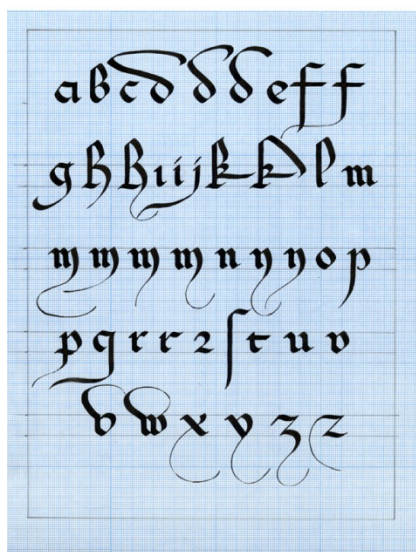 a b c d d d e f f
g h h ı i j k k l m
m m m m n n n o p
p q r r ꝛ ſ t u v
v w x y z z